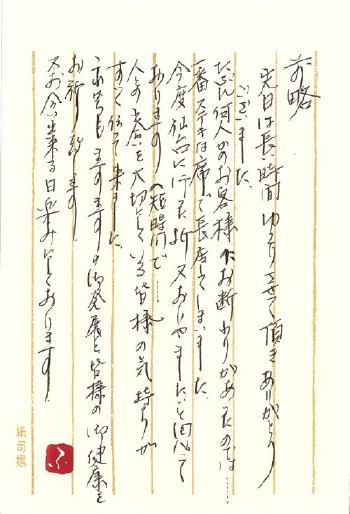 前略
先日は長い時間ゆっくりさせて頂きありがとう
ございました
たぶん何人かのお客様はお断わりがあったのでは……
一番ステキな席で長居をしてしまいました
今度仙台に行った折又おじゃましたいと思って
おります 短時間で……
人との交点を大切にしている皆様の気持ちが
すごく伝って来ました
ますますの御発展と皆様の御健康を
お祈り致します
又お会い出来る日楽しみにしております!
紙司撰
ふ